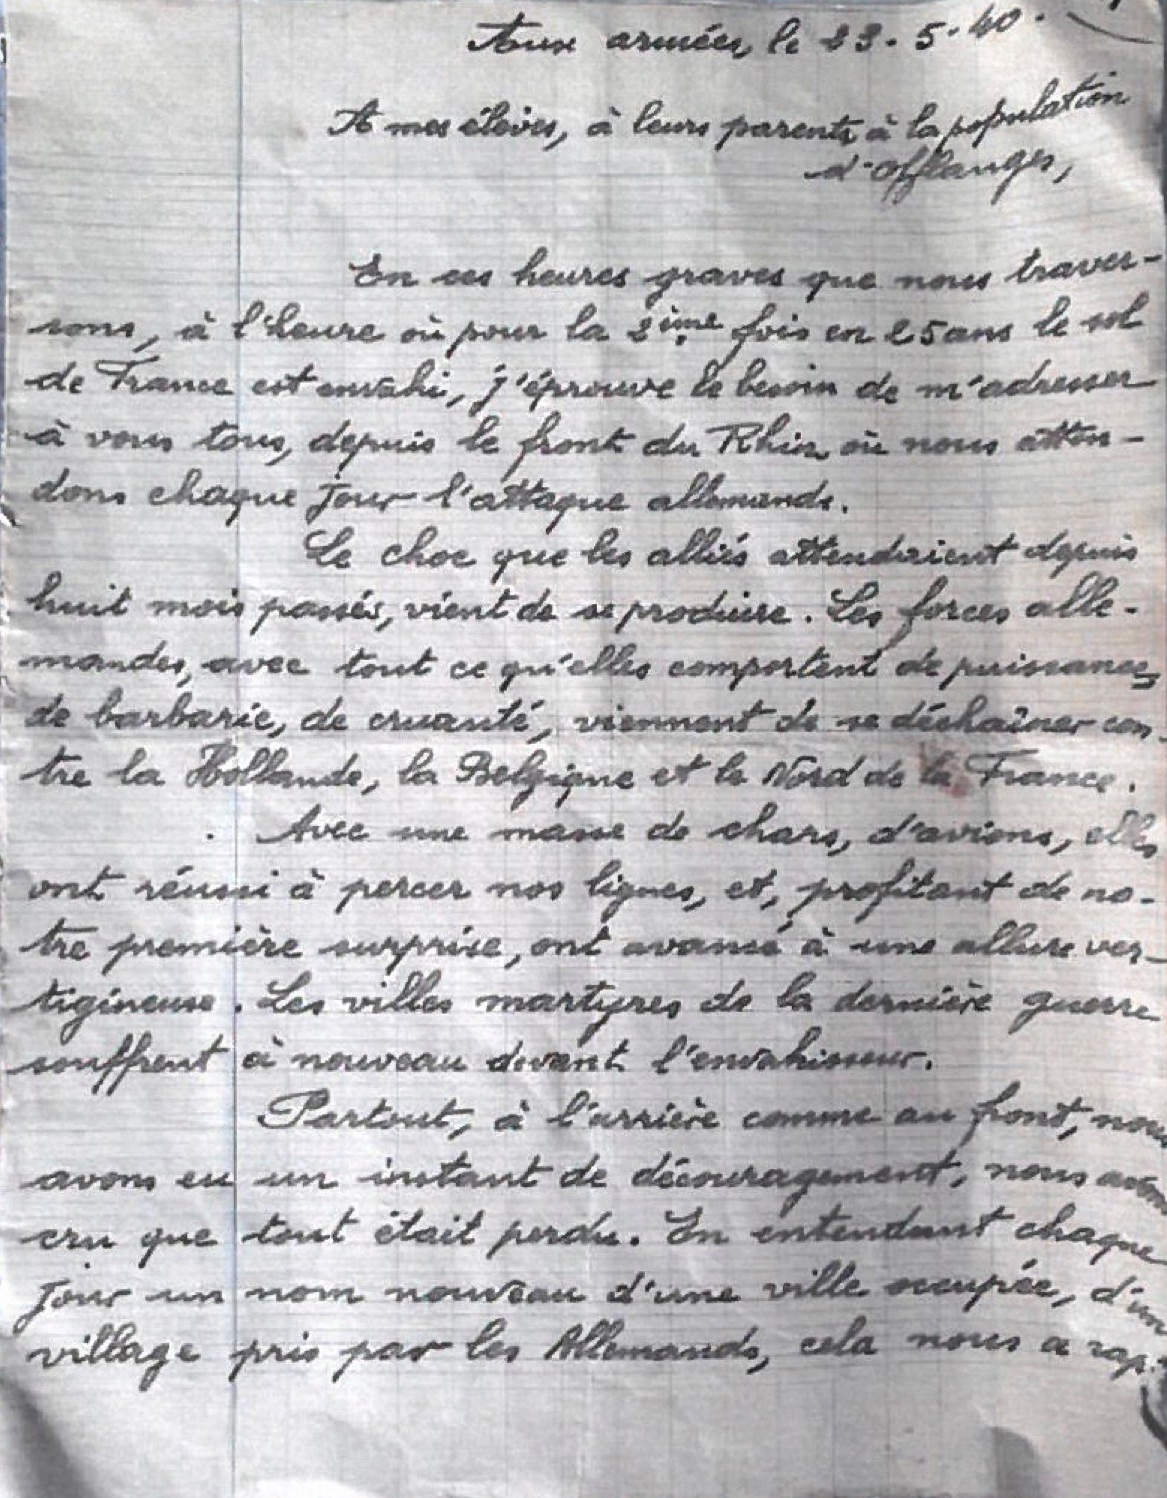 Aux armées, le 23. 5. 40.
A mes élèves, à leurs parents à la population
d'Offlanges,
En ces heures graves que nous traver-
sons, à l'heure où pour la 2ème fois en 25 ans le sol
de France est envahi, j'éprouve le besoin de m'adresser
à vous tous, depuis le front du Rhin où nous atten-
dons chaque jour l'attaque allemande.
Le choc que les alliés attendaient depuis
huit mois passés, vient de se produire. Les forces alle-
mandes, avec tout ce qu'elles comportent de puissance,
de barbarie, de cruauté, viennent de se déchaîner con-
tre la Hollande, la Belgique et le Nord de la France.
Avec une masse de chars, d'avions, elles
ont réussi à percer nos lignes, et, profitant de no-
tre première surprise, ont avancé à une allure ver-
tigineuse. Les villes martyres de la dernière guerre
souffrent à nouveau devant l'envahisseur.
Partout, à l'arrière comme au front, nous
avons eu un instant de découragement, nous avons
cru que tout était perdu. En entendant chaque
jour un nom nouveau d'une ville occupée, d'un
village pris par les Allemands, cela nous a rap-